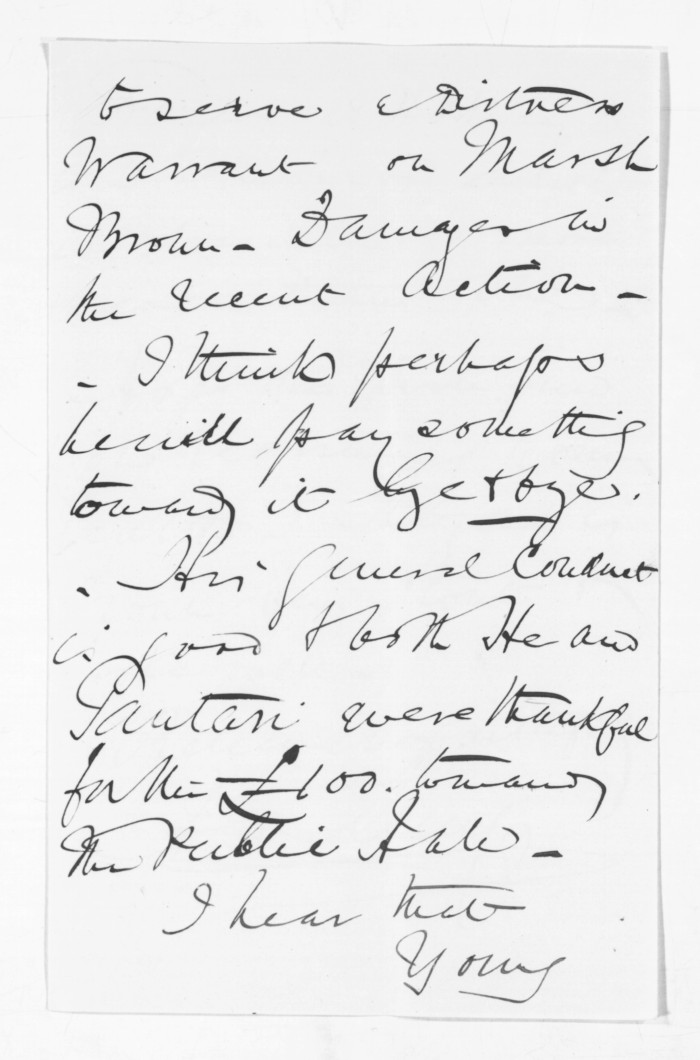 to serve a Distress
Warrant on Marsh
Brown - Damages in
the recent action -
- I think perhaps
he will pay something
towards it bye & bye.
. His general conduct
is good & both He and
Pautari were thankful
for the £100. towards
the Public Hall -
I hear that
Young